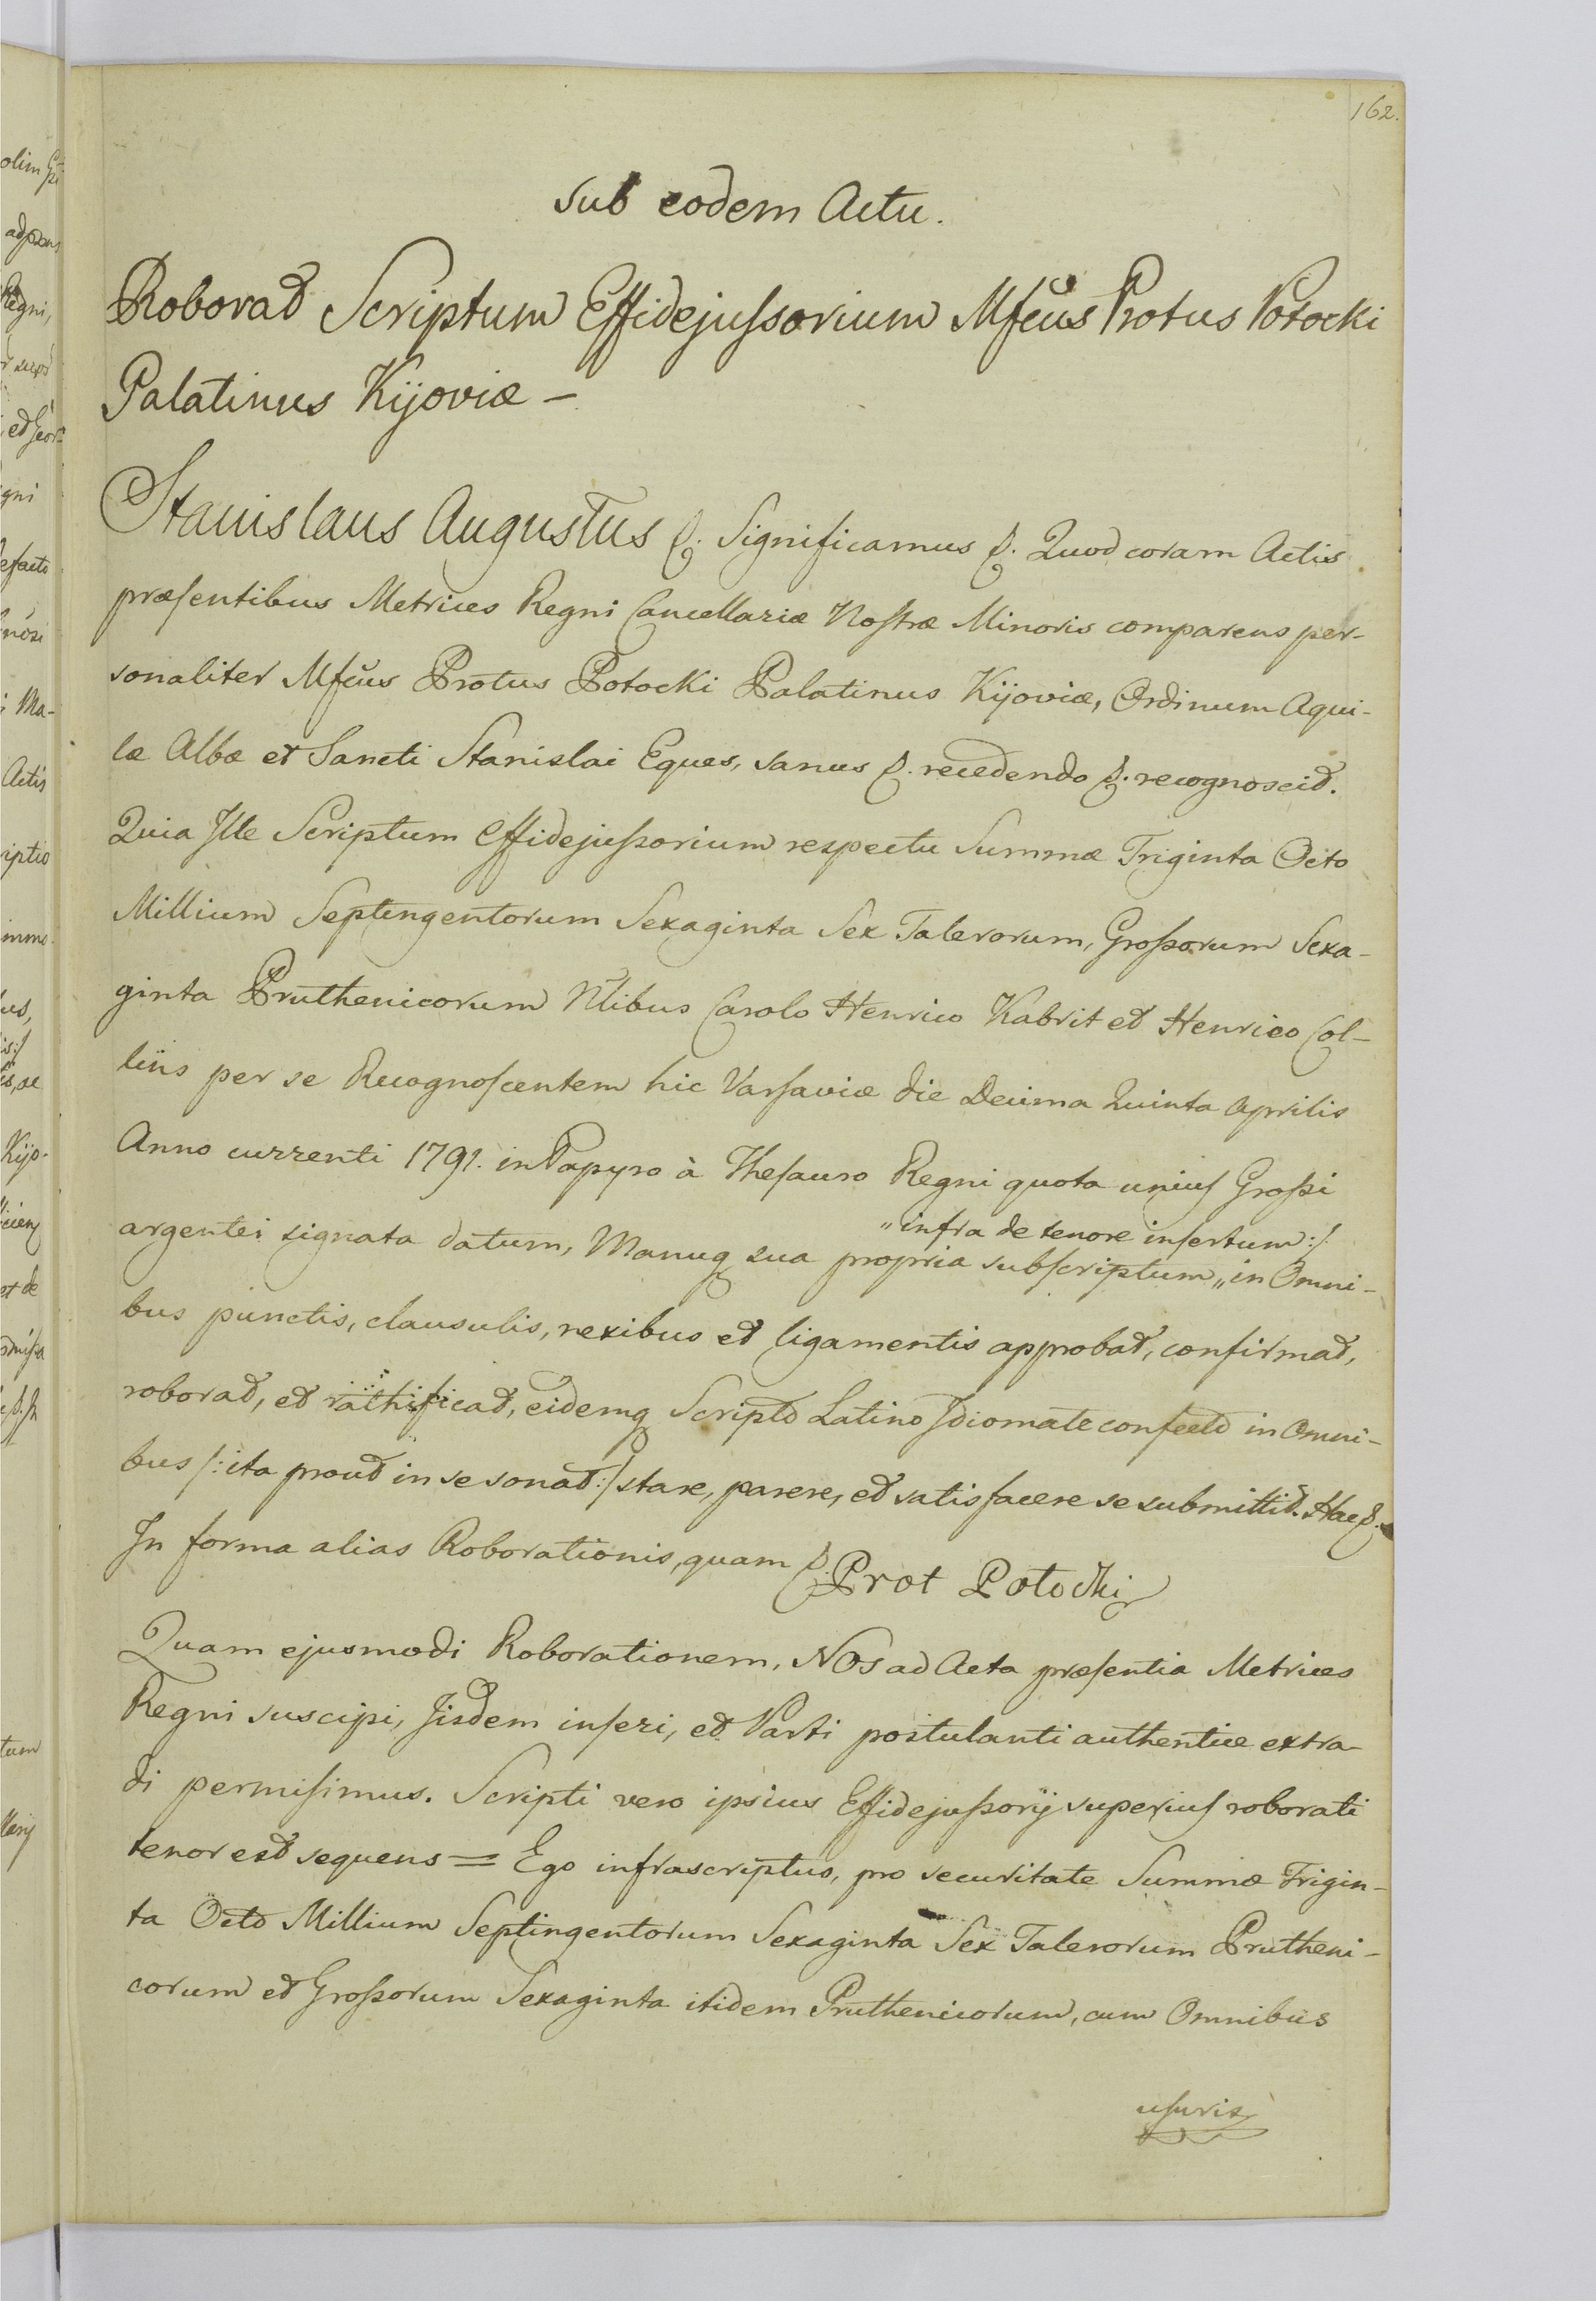 162.
sub eodem Actu.
Roborat Scriptum Effidejussorium Mfcus Protus Potocki
Palatinus Kijoviæ –
Stanislaus Augustus &. Significamus &. Quod coram Actis
præsentibus Metrices Regni Cancellariæ Nostræ Minoris comparens per-
sonaliter Mfcus Protus Potocki Palatinus Kijoviæ, Ordinum Aqui-
læ Albæ et Sancti Stanislai Eques, sanus &. recedendo &. recognoscit.
Quia Ille Scriptum Effidejussorium respectu Summæ Triginta Octo
Millium Septengentorum Sexaginta Sex Talerorum, Grossorum Sexa-
ginta Pruthenicorum Nlibus Carolo Henrico Kabrit et Henrico Col-
liis per se Recognoscentem hic Varsaviæ die Decima Quinta Aprilis
Anno currenti 1791. in Papyro à Thesauro Regni quota unius Grossi
„infra de tenore insertum:/
argentei signata datum, Manuq sua propria subscriptum „ in Omni-
bus punctis, clausulis, nexibus et ligamentis approbat, confirmat,
roborat, et rathificat, eidemq Scripto Latino Idiomate confecto in Omni-
bus /:ita prout in se sonat:/ stare, parere, et satisfacere se submittit. Hac &.
In forma alias Roborationis, quam &. Prot Potocki
Quam ejusmodi Roborationem, NOs ad Acta præsentia Metrices
Regni suscipi, Iisdem inseri, et Parti postulanti authentice extra-
di permisimus. Scripti vero ipsius Effidejussorij superius roborati
tenor est sequens = Ego infrascriptus, pro securitate Summæ Trigin-
ta Octo Millium Septingentorum Sexaginta Sex Talerorum Prutheni-
corum et Grossorum Sexaginta itidem Pruthenicorum, cum Omnibus
usuris